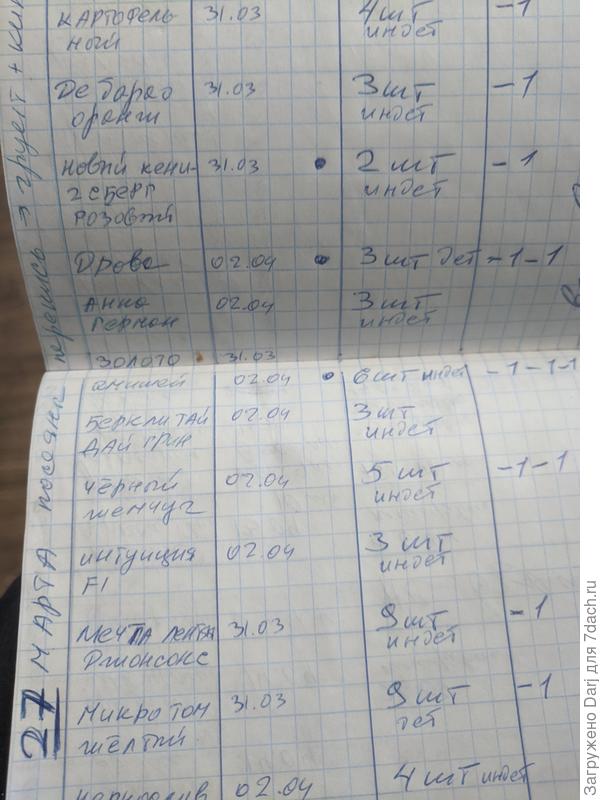 КАРТОФЕЛЬ 31.03 4 шт -1
ный индет
Де барао 31.03 3 шт -1
оранж индет
новый кени- 31.03 • 2 шт -1
гсберг индет
розовый
Дрова 02.04 • 3 шт дет -1-1
Анна 02.04 3 шт
Герман индет
ЗОЛОТО 31.03
амишей 02.04 • 6 шт индет -1-1-1
Беркли тай 02.04 3 шт
ДАЙ ГРИН индет
чёрный 02.04 5 шт -1-1
жемчуг индет
интуиция 02.04 3 шт
F1 индет
Мечта 31.03 9 шт -1
Джонсона индет
Микро том 31.03 9 шт -1
жёлтый дет
02.04 4 шт индет
27 МАРТА посеяны
→ грунт +
Загружено Darj для 7dach.ru